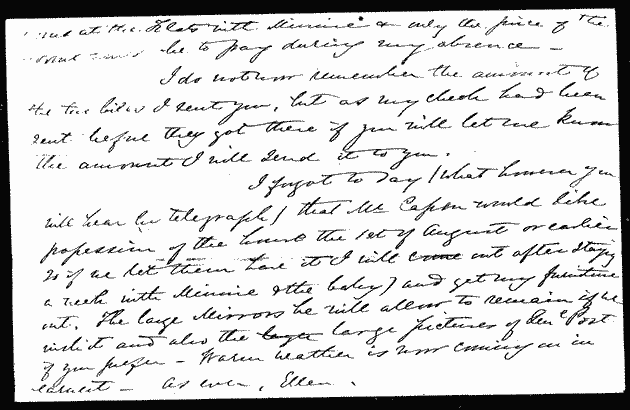 at the Flats with Minnie & only the price of the
he to pay during my absence —
I do not now remember the amount of
the tax bills I sent you, but as my check had been
sent before they got there if you will let me know
the amount I will send it to you.
I forgot to say (what however you
will hear by telegraph) that Mr Capron would like
possession of the house the 1st of August or earlier
So if we let them have it I will come out after staying
a week with Minnie & the baby) and get my furniture
out. The large Mirrors he will allow to remain if we
wish it and also the large large pictures of Genl Post
if you prefer — Warm weather is now coming on in
earnest — As ever, Ellen.